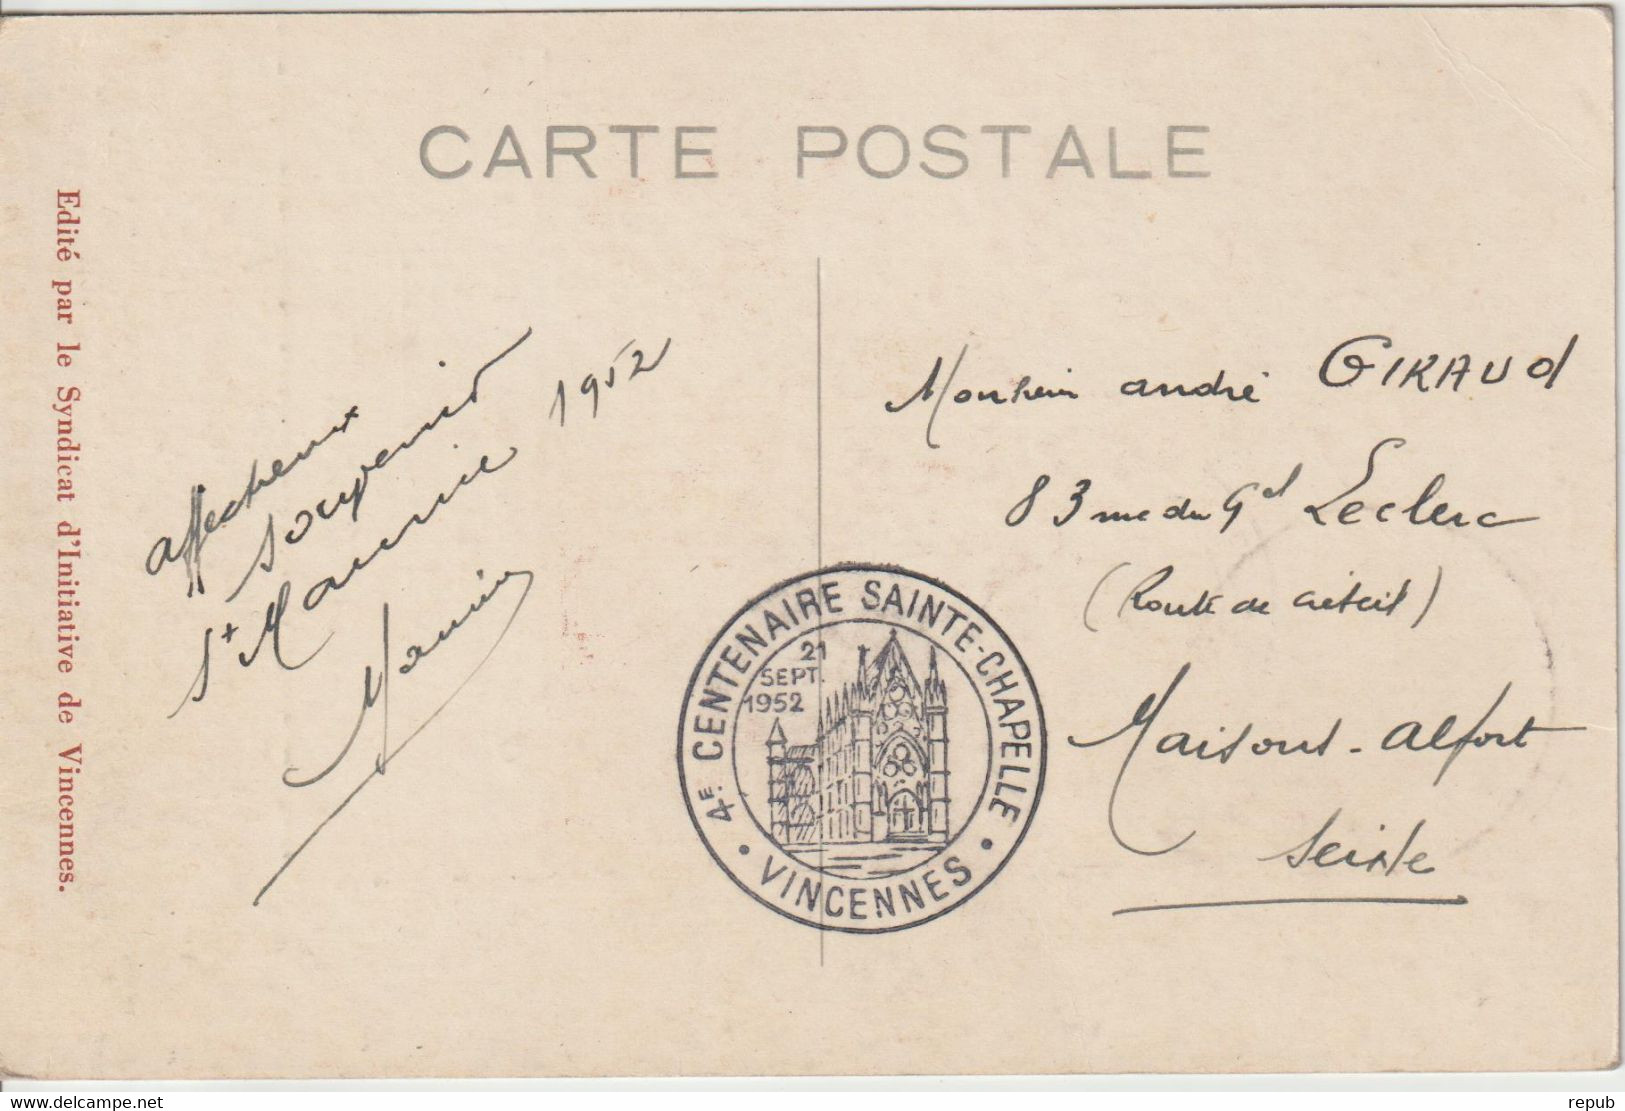 CARTE POSTALE
Edité par le Syndicat d'Initiative de Vincennes.
affectueux
souvenirs
St Maurice 1952
Monsieur andré GIRAUD
83 rue du Gal Leclerc
(Route de créteil)
Maisons-alfort
Seine
4E CENTENAIRE SAINTE-CHAPELLE
21
SEPT.
1952
• VINCENNES •
www.delcampe.net
repub